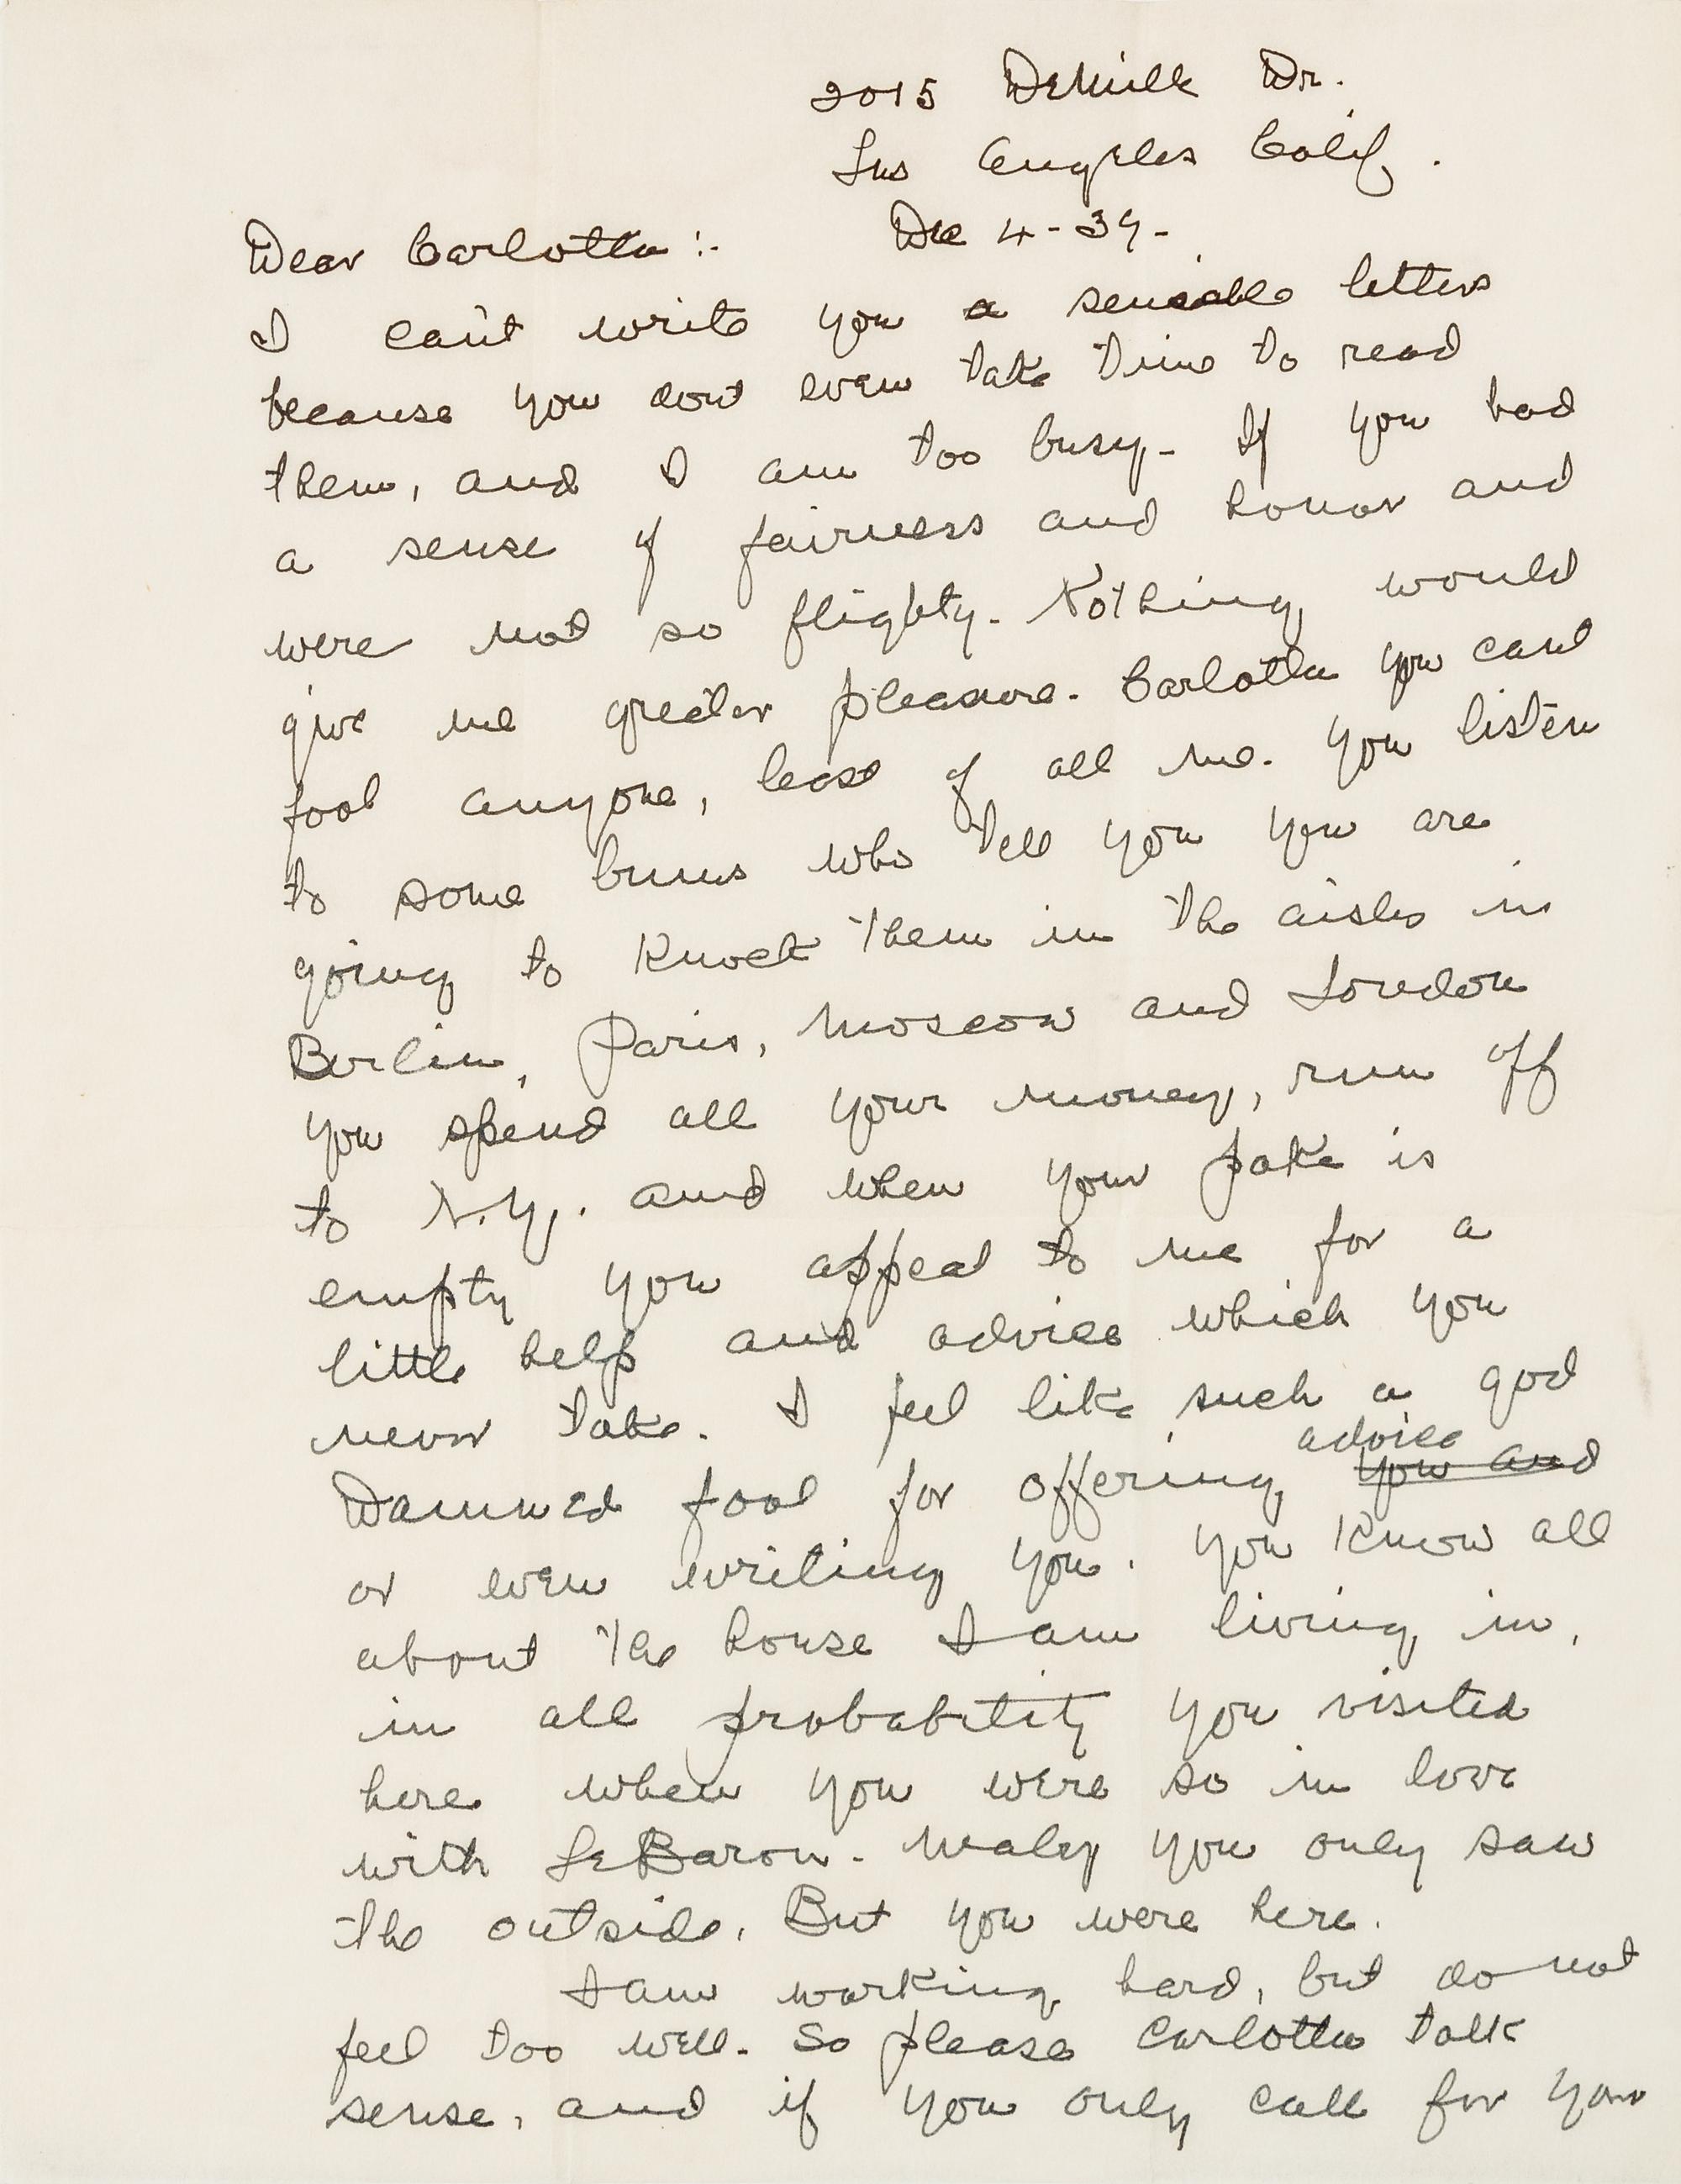 2015 DeMille Dr.
Los Angeles Calif.
Dec 4-39-
Dear Carlotta:-
I can't write you a sensible letters
because you dont even take time to read
them, and I am too busy- If you had
a sense of fairness and honor and
were not so flighty- Nothing would
give me greater pleasure- Carlotta you cant
fool anyone, least of all me. You listen
to some bums who tell you you are
going to Knock them in the aisles in
Berlin, Paris, Moscow and London
you spend all your money, run off
to N.Y. and when your poke is
empty you appeal to me for a
little help and advice which you
never take. I feel like such a god
Damned fool for offering advice you and
or even writing you. You Know all
about the house I am living in,
in all probability you visited
here when you were so in love
with LeBaron- Maby you only saw
the outside, But you were here.
I am working hard, but do not
feel too well- So please Carlotta talk
sense, and if you only call for your